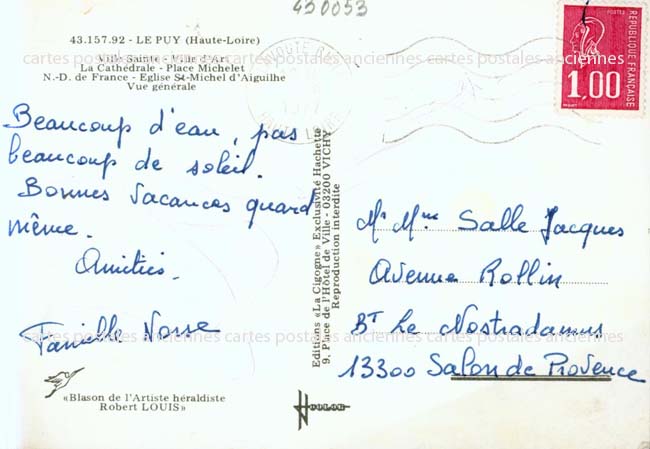 430053
43.157.92 - LE PUY (Haute-Loire)
Ville Sainte - Ville d'Art
La Cathédrale - Place Michelet
N.-D. de France - Eglise St-Michel d'Aiguilhe
Vue générale
POSTES
REPUBLIQUE FRANÇAISE
1,00
Beaucoup d'eau, pas
beaucoup de soleil.
Bonnes Vacances quand
même.
Amitiés.
Editions «La Cigogne» Exclusivité Hachette
9, Place de l'Hôtel de Ville - 03200 VICHY
Reproduction interdite
Mr Mme Salle Jacques
Avenue Rollin
BT Le Nostradamus
13300 Salon de Provence
«Blason de l'Artiste héraldiste
Robert LOUIS»
cartes postales anciennes cartes postales anciennes cartes postales anciennes
cartes postales anciennes cartes postales anciennes cartes postales anciennes